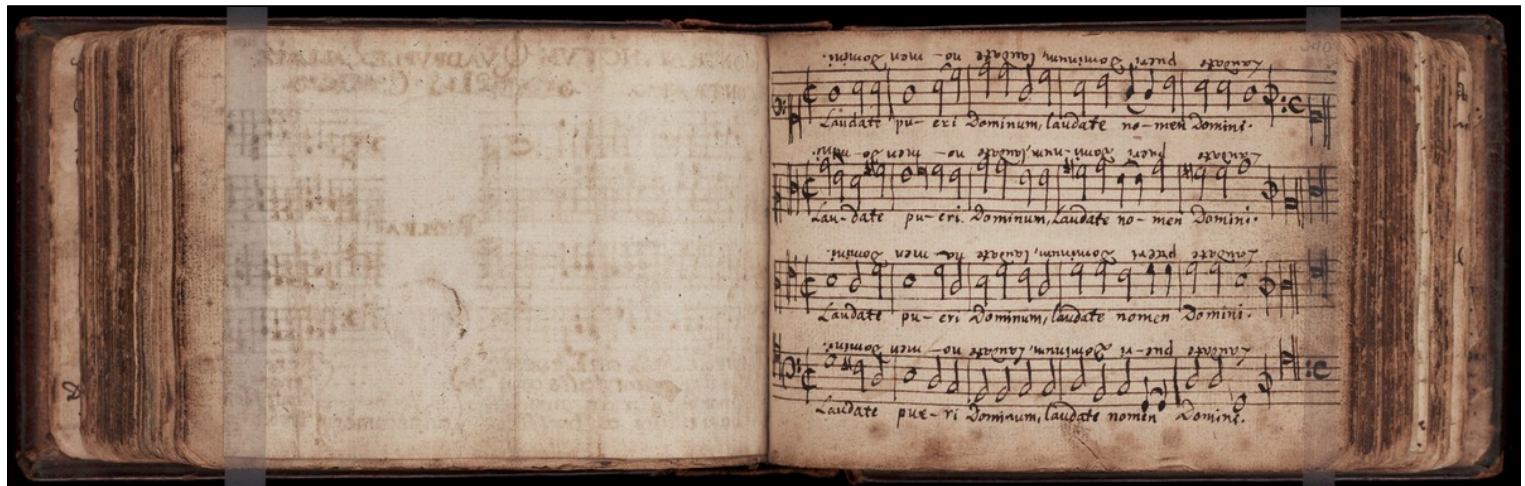 340
Laudate pueri Dominum, laudate no- men Domini.
Laudate pu- eri Dominum, laudate no- men Domini.
Laudate pueri Domi-num, laudate no- men Do- mini
Lau- date pu- eri Dominum, Laudate no- men Domini.
Laudate pueri Dominum, laudate no- men Domini.
Laudate pu- eri Dominum, laudate nomen Domini.
Laudate pue-ri Dominum, laudate no- men Domini.
Laudate pue- ri Dominum, laudate nomen Domini.